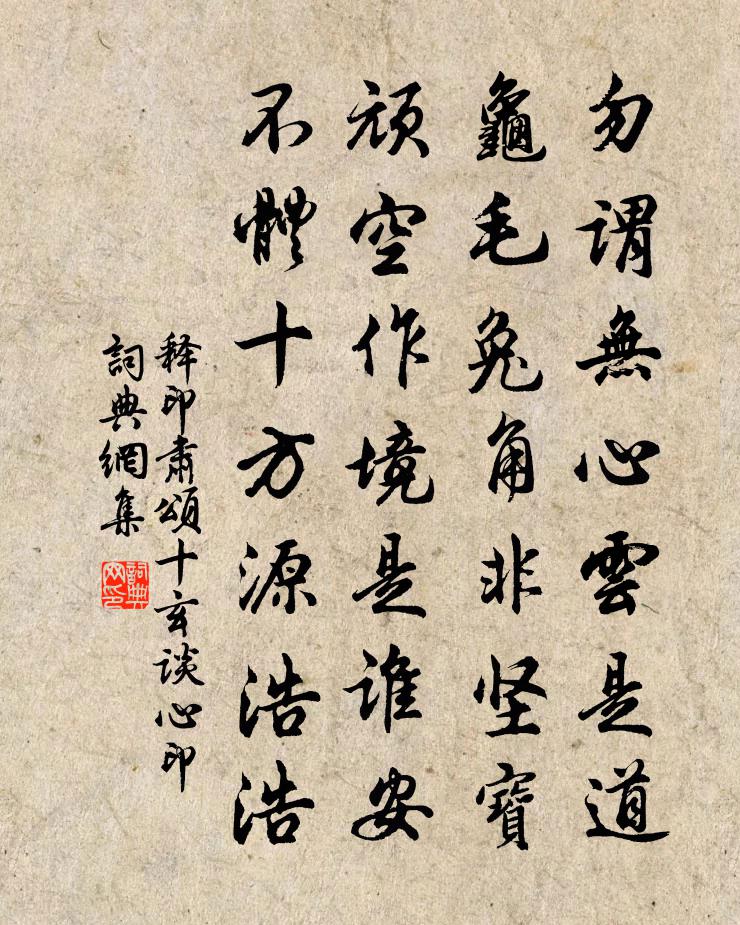 勿謂無心雲是道
龜毛兔角非坚寶
頑空作境是谁安
不體十方源浩浩
释印肅頌十玄谈心印
詞典網集
詞典网印